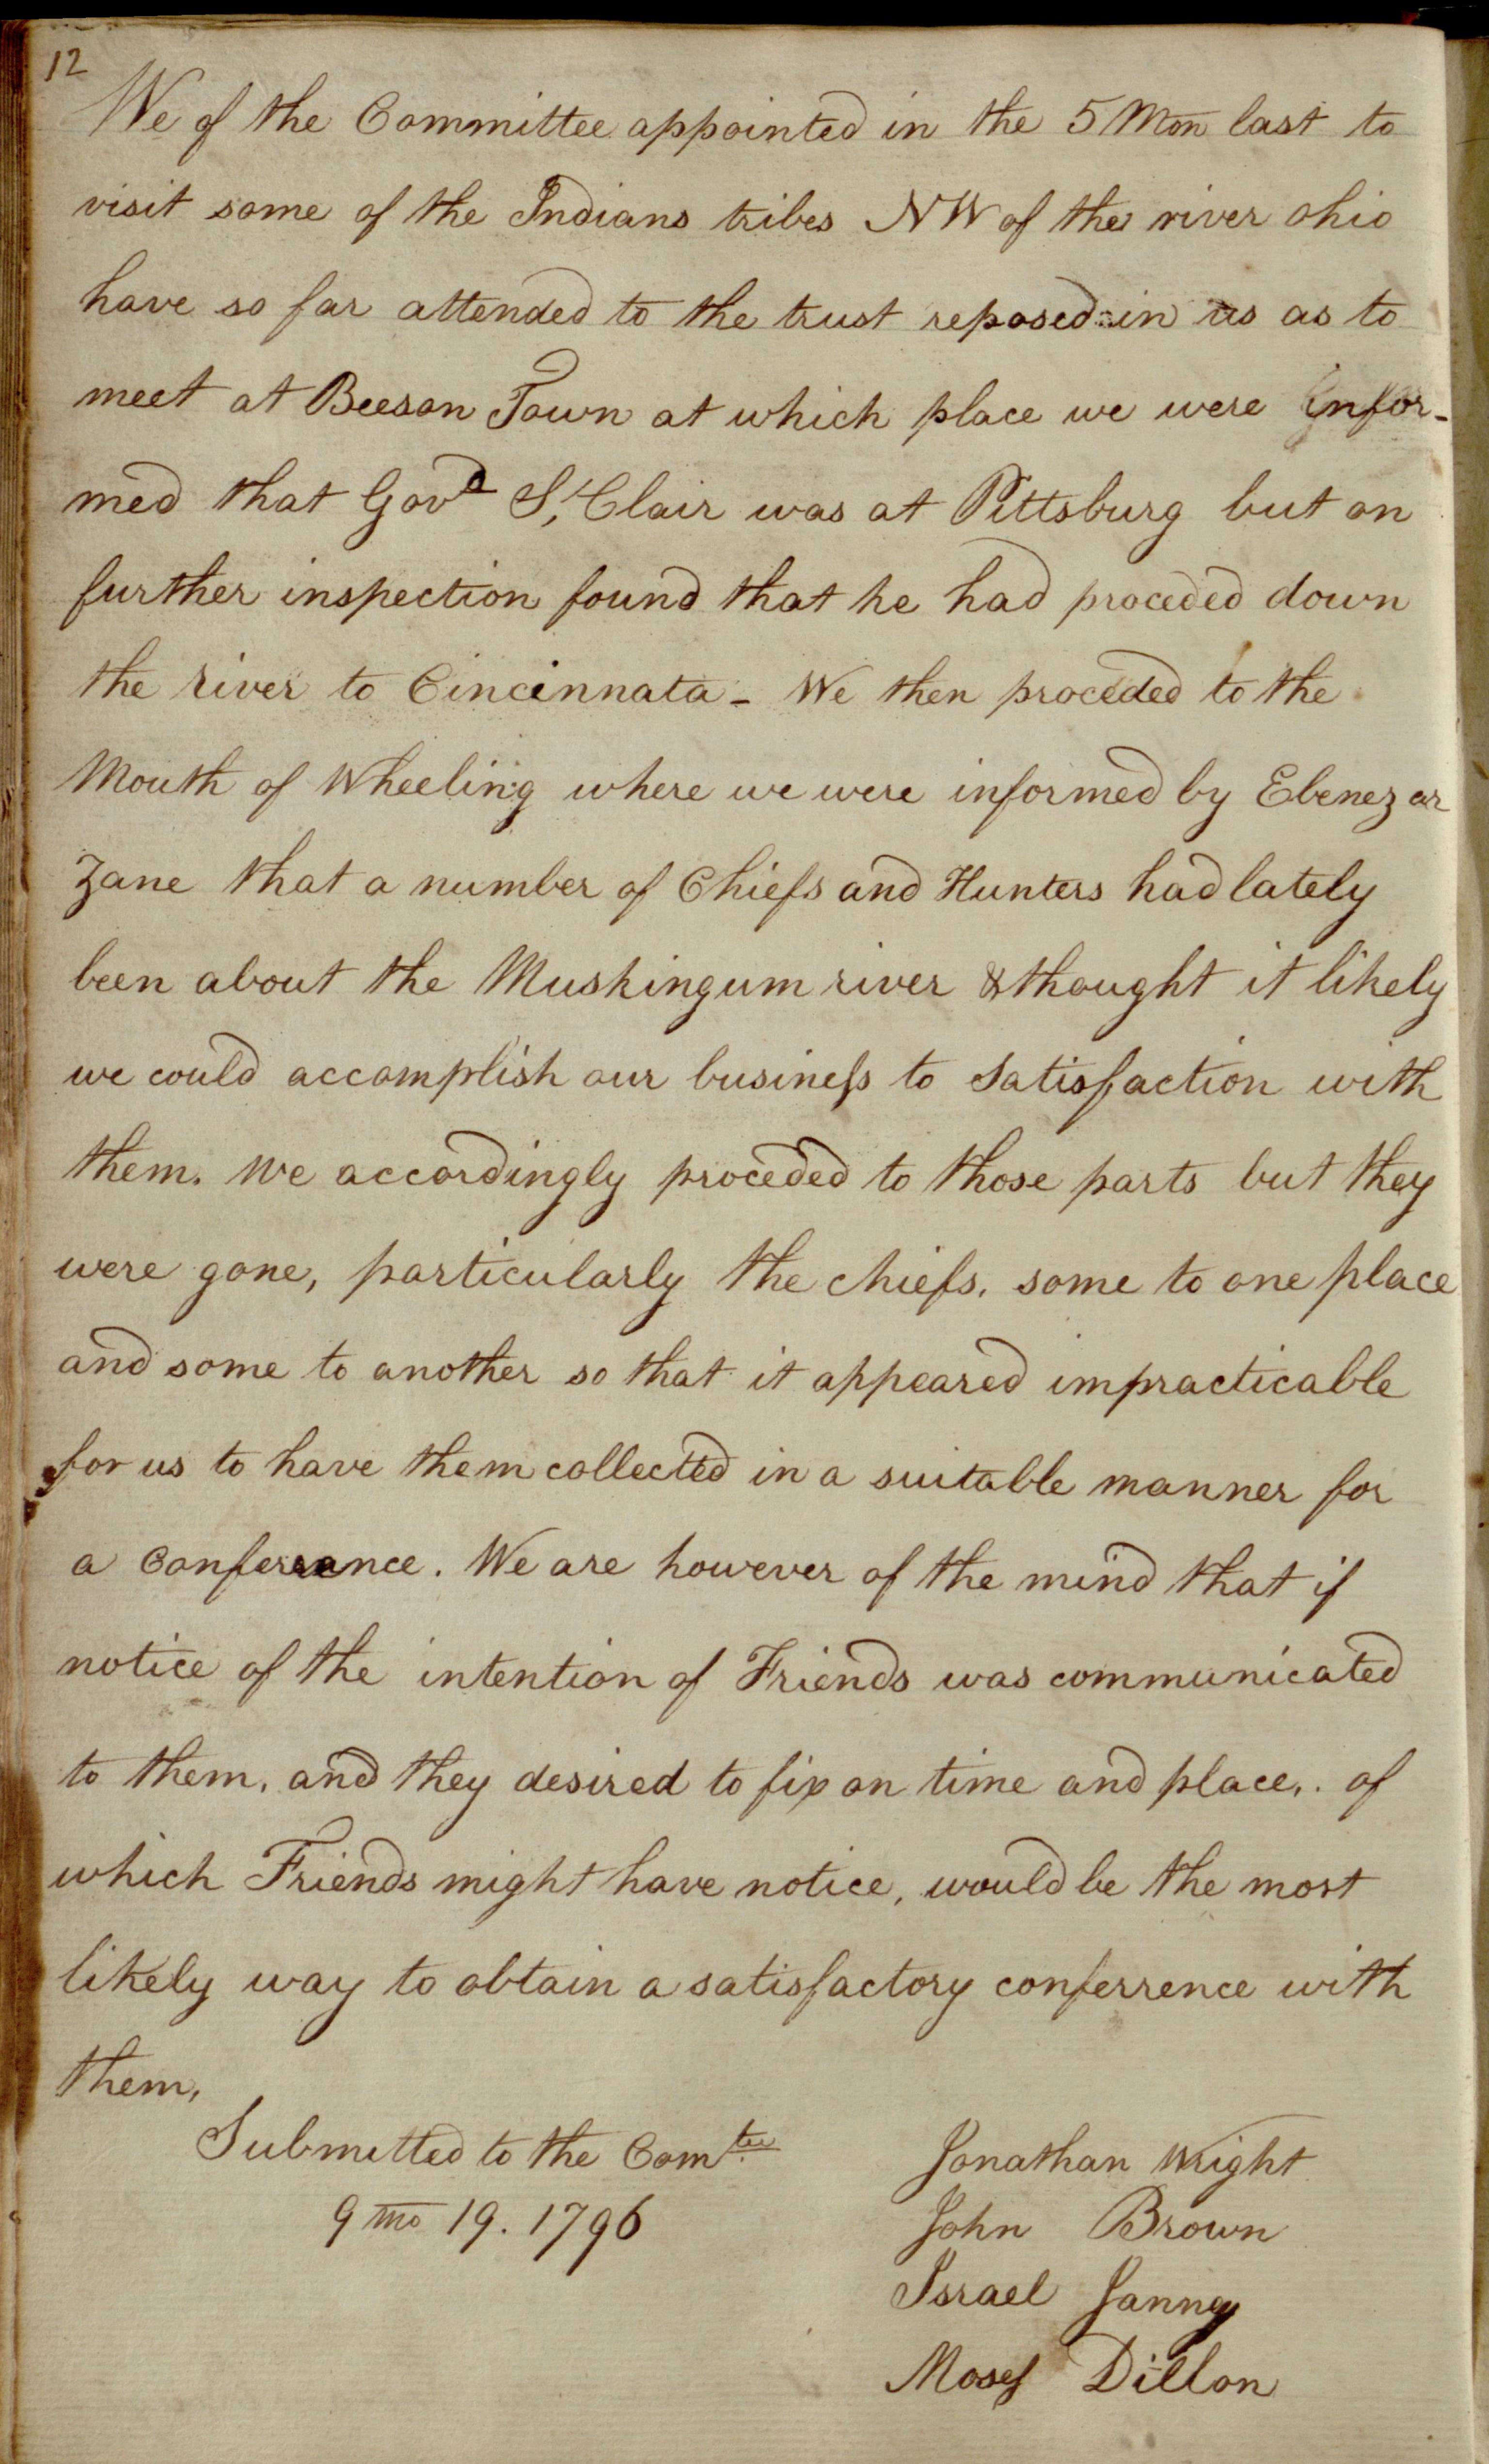 12
We of the Committee appointed in the 5 Mon last to
visit some of the Indians tribes NW of the river Ohio
have so far attended to the trust reposed in us as to
meet at Beeson Town at which place we were infor-
med that Govd St Clair was at Pittsburg but on
further inspection found that he had proceded down
the river to Cincinnata - We then proceded to the
Mouth of Wheeling where we were informed by Ebenezar
Zane that a number of Chiefs and Hunters had lately
been about the Muskingum river & thought it likely
we could accomplish our business to satisfaction with
them. We accordingly proceded to those parts but they
were gone, particularly the chiefs. some to one place
and some to another so that it appeared impracticable
for us to have them collected in a suitable manner for
a Conferrance. We are however of the mind that if
notice of the intention of Friends was communicated
to them, and they desired to fix on time and place,. of
which Friends might have notice, would be the most
likely way to obtain a satisfactory conferrence with
them,
Submitted to the Comtee
9 mo 19. 1796
Jonathan Wright
John Brown
Israel Janney
Moses Dillon